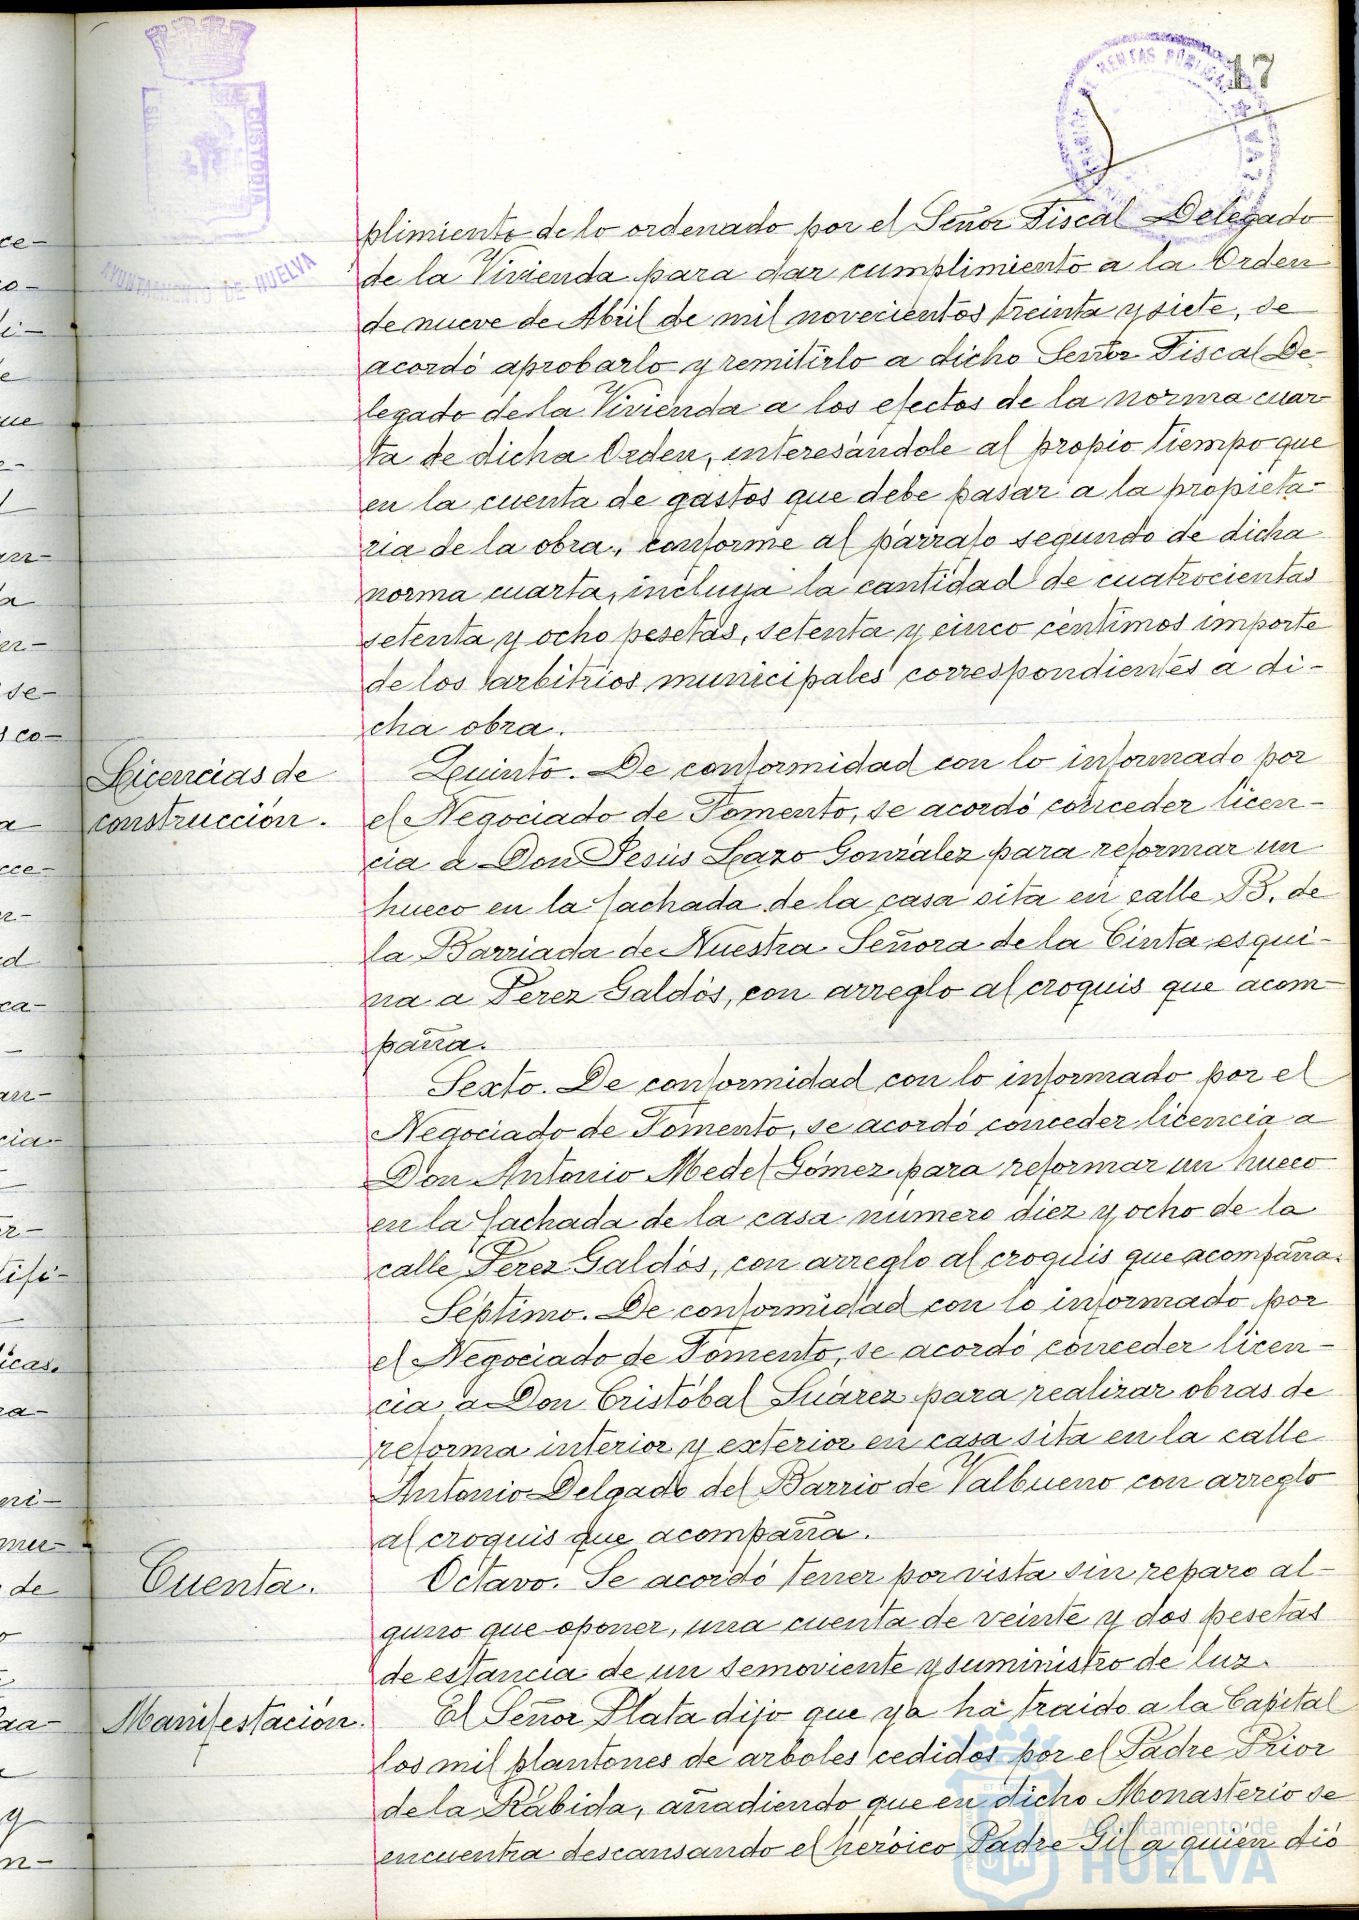 17
AYUNTAMIENTO DE HUELVA
plimiento de lo ordenado por el Señor Fiscal Delegado
de la Vivienda para dar cumplimiento a la Orden
de nueve de Abril de mil novecientos treinta y siete, se
acordó aprobarlo y remitirlo a dicho Señor Fiscal De-
legado de la Vivienda a los efectos de la norma cuar-
ta de dicha Orden, interesándole al propio tiempo que
en la cuenta de gastos que debe pasar a la propieta-
ria de la obra, conforme al párrafo segundo de dicha
norma cuarta, incluya la cantidad de cuatrocientas
setenta y ocho pesetas, setenta y cinco céntimos importe
de los arbitrios municipales correspondientes a di-
cha obra.
Licencias de
construcción.
Quinto. De conformidad con lo informado por
el Negociado de Fomento, se acordó conceder licen-
cia a Don Jesús Lazo González para reformar un
hueco en la fachada de la casa sita en calle B. de
la Barriada de Nuestra Señora de la Cinta esqui-
na a Perez Galdós, con arreglo al croquis que acom-
paña.
Sexto. De conformidad con lo informado por el
Negociado de Fomento, se acordó conceder licencia a
Don Antonio Medel Gómez para reformar un hueco
en la fachada de la casa número diez y ocho de la
calle Perez Galdós, con arreglo al croquis que acompaña.
Séptimo. De conformidad con lo informado por
el Negociado de Fomento, se acordó conceder licen-
cia a Don Cristóbal Suárez para realizar obras de
reforma interior y exterior en casa sita en la calle
Antonio Delgado del Barrio de Valbueno con arreglo
al croquis que acompaña.
Cuenta.
Octavo. Se acordó tener por vista sin reparo al-
guno que oponer, una cuenta de veinte y dos pesetas
de estancia de un semoviente y suministro de luz.
Manifestación.
El Señor Plata dijo que ya ha traido a la Capital
los mil plantones de arboles cedidos por el Padre Prior
de la Rábida, añadiendo que en dicho Monasterio se
encuentra descansando el heróico Padre Gil a quién dió
Ayuntamiento de
HUELVA